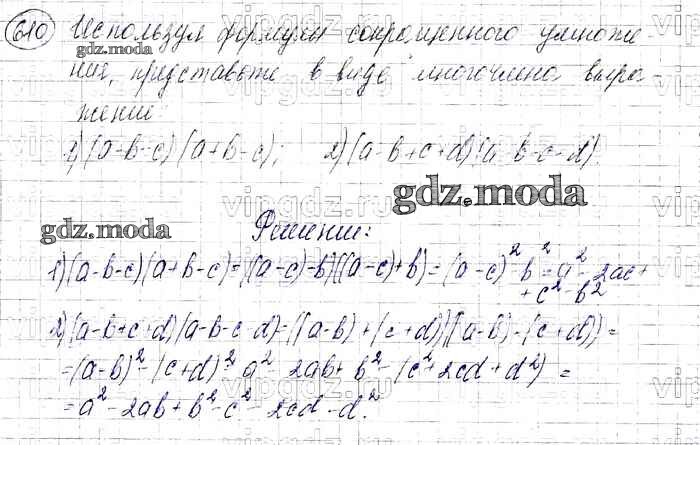 610 Используя формулы сокращенного умноже
gdz.moda
ния, представьте в виде многочлена выра-
жение
1) (a-b-c)(a+b-c); 2) (a-b+c+d)(a-b-c-d)
gdz.moda
gdz.moda
Решение:
1) (a-b-c)(a+b-c)=((a-c)-b)((a-c)+b)=(a-c)²-b²=a²-2ac+
+c²-b²
2) (a-b+c+d)(a-b-c-d)=((a-b)+(c+d))((a-b)-(c+d))=
=(a-b)²-(c+d)²=a²-2ab+b²-(c²+2cd+d²)=
=a²-2ab+b²-c²-2cd-d².